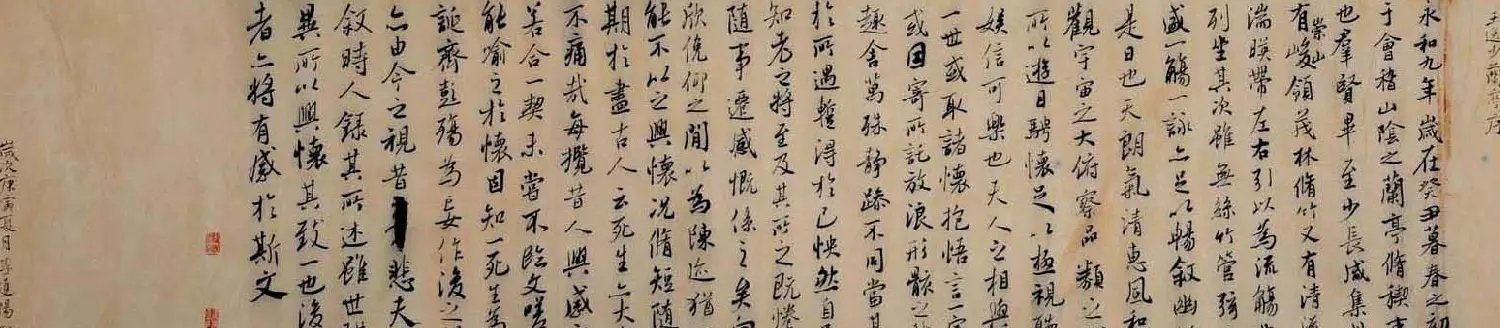 王逸少蘭亭序
永和九年歲在癸丑暮春之初
于會稽山陰之蘭亭脩稧事
也羣賢畢至少長咸集
有崇山峻領茂林脩竹又有清流
湍暎帶左右引以為流觴
列坐其次雖無絲竹管弦
盛一觴一詠亦足以暢敘幽
是日也天朗氣清惠風和
觀宇宙之大俯察品類之
所以遊目騁懷足以極視聽
娛信可樂也夫人之相與
一世或取諸懷抱悟言一室
或因寄所託放浪形骸之
趣舍萬殊靜躁不同當其
於所遇暫得於己怏然自
知老之將至及其所之既惓
隨事遷感慨係之矣向
欣俛仰之閒以為陳迹猶
能不以之興懷況脩短隨
期於盡古人云死生亦大
不痛哉每攬昔人興感
若合一契未嘗不臨文嗟
能喻之於懷固知一死生為
誕齊彭殤為妄作後之
亦由今之視昔悲夫
敘時人錄其所述雖世殊
異所以興懷其致一也後
者亦將有感於斯文
歲次庚寅夏月李道陽